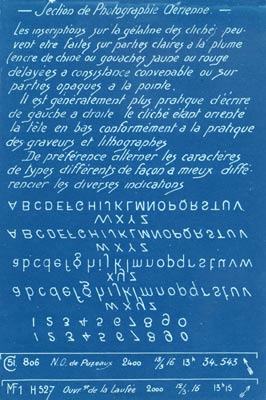 — Section de Photographie Aérienne. —
Les inscriptions sur la gélatine des clichés peu-
vent être faites sur parties claires à la plume
(encre de chine ou gouaches jaune ou rouge
délayées a consistance convenable ou sur
parties opaques a la pointe.
Il est généralement plus pratique d'écrire
de gauche a droite le cliché étant orienté
la tête en bas conformément à la pratique
des graveurs et lithographes
De préférence alterner les caractères
de types différents de façon a mieux diffé-
rencier les diverses indications
A B C D E F G H I J K L M N O P Q R S T U V
W X Y Z
A B C D E F G H I J K L M N O P Q R S T U V
W X Y Z
a b c d e f g h i j k l m n o p q r s t u v w
x y z
a b c d e f g h i j k l m n o p q r s t u v
w x y z
1 2 3 4 5 6 7 8 9 0
1 2 3 4 5 6 7 8 9 0
51 806 N.O. de Puzeaux 2400 13/3 16 13h 34.543
MF1 H527 Ouvr. de la Laufée 2000 16 13h15